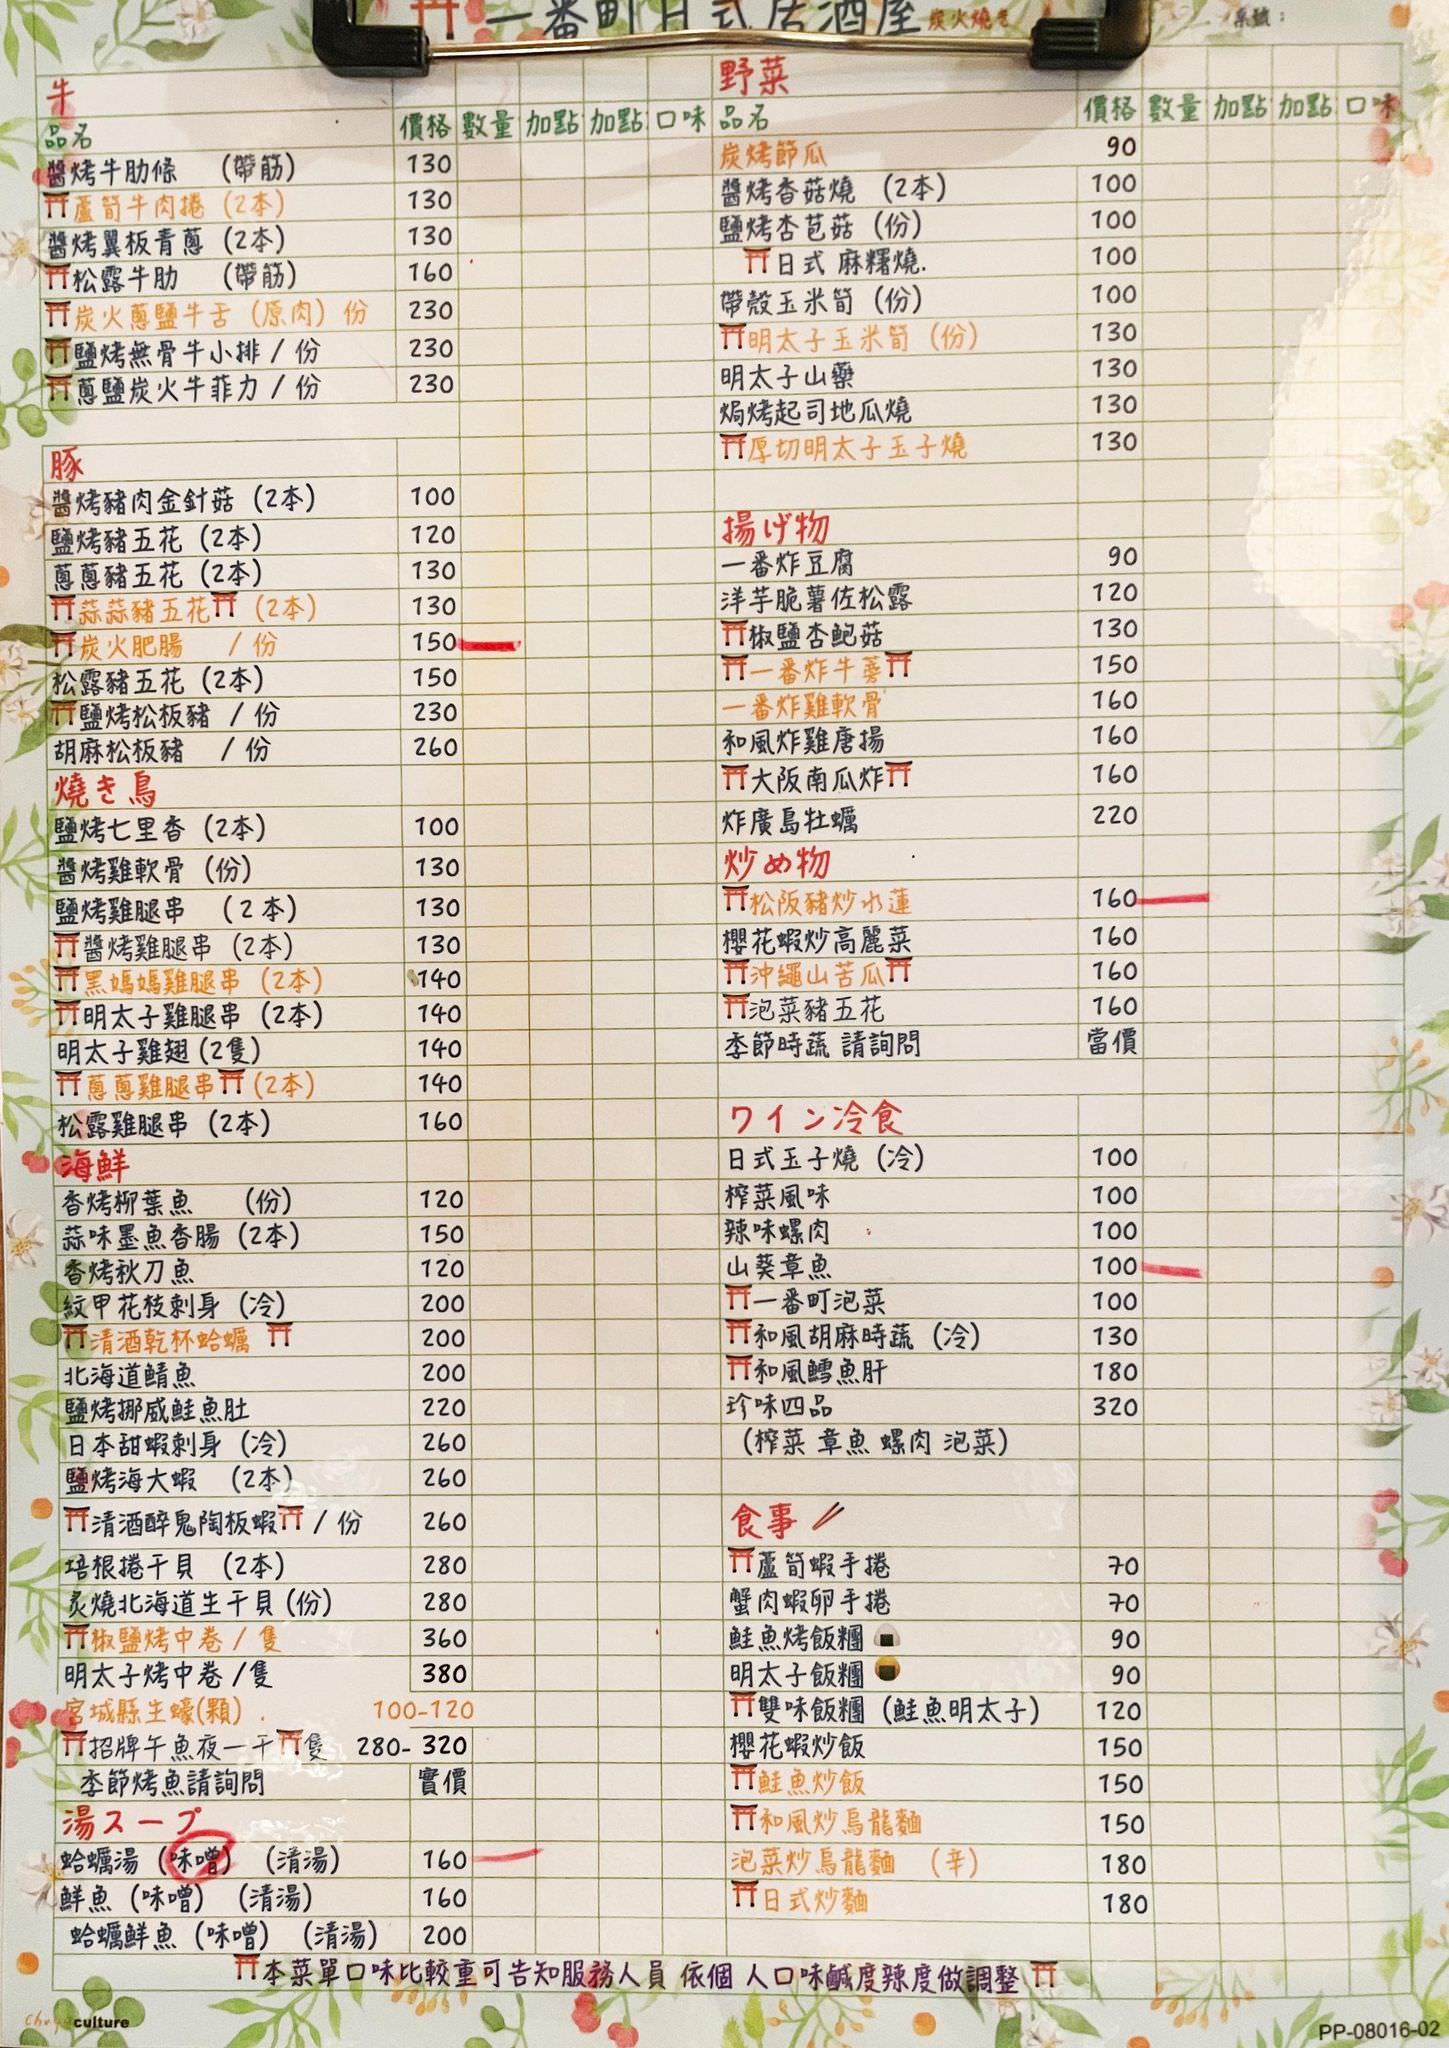 一番町日式居酒屋 炭火燒き 桌號：
牛
品名 價格 數量 加點 加點 口味
醬烤牛肋條 (帶筋) 130
蘆筍牛肉捲 (2本) 130
醬烤翼板青蔥 (2本) 130
松露牛肋 (帶筋) 160
炭火蔥鹽牛舌 (原肉) 份 230
鹽烤無骨牛小排 / 份 230
蔥鹽炭火牛菲力 / 份 230
豚
醬烤豬肉金針菇 (2本) 100
鹽烤豬五花 (2本) 120
蔥蔥豬五花 (2本) 130
蒜蒜豬五花 (2本) 130
炭火肥腸 / 份 150
松露豬五花 (2本) 150
鹽烤松板豬 / 份 230
胡麻松板豬 / 份 260
燒き鳥
鹽烤七里香 (2本) 100
醬烤雞軟骨 (份) 130
鹽烤雞腿串 (2本) 130
醬烤雞腿串 (2本) 130
黑媽媽雞腿串 (2本) 140
明太子雞腿串 (2本) 140
明太子雞翅 (2隻) 140
蔥蔥雞腿串 (2本) 140
松露雞腿串 (2本) 160
海鮮
香烤柳葉魚 (份) 120
蒜味墨魚香腸 (2本) 150
香烤秋刀魚 120
紋甲花枝刺身 (冷) 200
清酒乾杯蛤蠣 200
北海道鯖魚 200
鹽烤挪威鮭魚肚 220
日本甜蝦刺身 (冷) 260
鹽烤海大蝦 (2本) 260
清酒醉鬼陶板蝦 / 份 260
培根捲干貝 (2本) 280
炙燒北海道生干貝 (份) 280
椒鹽烤中卷 / 隻 360
明太子烤中卷 / 隻 380
宮城縣生蠔(顆) . 100-120
招牌午魚夜一干 隻 280-320
季節烤魚請詢問 實價
湯スープ
蛤蠣湯 (味噌) (清湯) 160
鮮魚 (味噌) (清湯) 160
蛤蠣鮮魚 (味噌) (清湯) 200
野菜
品名 價格 數量 加點 加點 口味
炭烤節瓜 90
醬烤香菇燒 (2本) 100
鹽烤杏苞菇 (份) 100
日式 麻糬燒. 100
帶殼玉米筍 (份) 100
明太子玉米筍 (份) 130
明太子山藥 130
焗烤起司地瓜燒 130
厚切明太子玉子燒 130
揚げ物
一番炸豆腐 90
洋芋脆薯佐松露 120
椒鹽杏鮑菇 130
一番炸牛蒡 150
一番炸雞軟骨 160
和風炸雞唐揚 160
大阪南瓜炸 160
炸廣島牡蠣 220
炒め物
松阪豬炒水蓮 160
櫻花蝦炒高麗菜 160
沖繩山苦瓜 160
泡菜豬五花 160
季節時蔬 請詢問 當價
ワイン冷食
日式玉子燒 (冷) 100
榨菜風味 100
辣味螺肉 100
山葵章魚 100
一番町泡菜 100
和風胡麻時蔬 (冷) 130
和風鱈魚肝 180
珍味四品 320
(榨菜 章魚 螺肉 泡菜)
食事
蘆筍蝦手捲 70
蟹肉蝦卵手捲 70
鮭魚烤飯糰 90
明太子飯糰 90
雙味飯糰 (鮭魚明太子) 120
櫻花蝦炒飯 150
鮭魚炒飯 150
和風炒烏龍麵 150
泡菜炒烏龍麵 (辛) 180
日式炒麵 180
本菜單口味比較重可告知服務人員 依個 人口味鹹度辣度做調整
culture
PP-08016-02